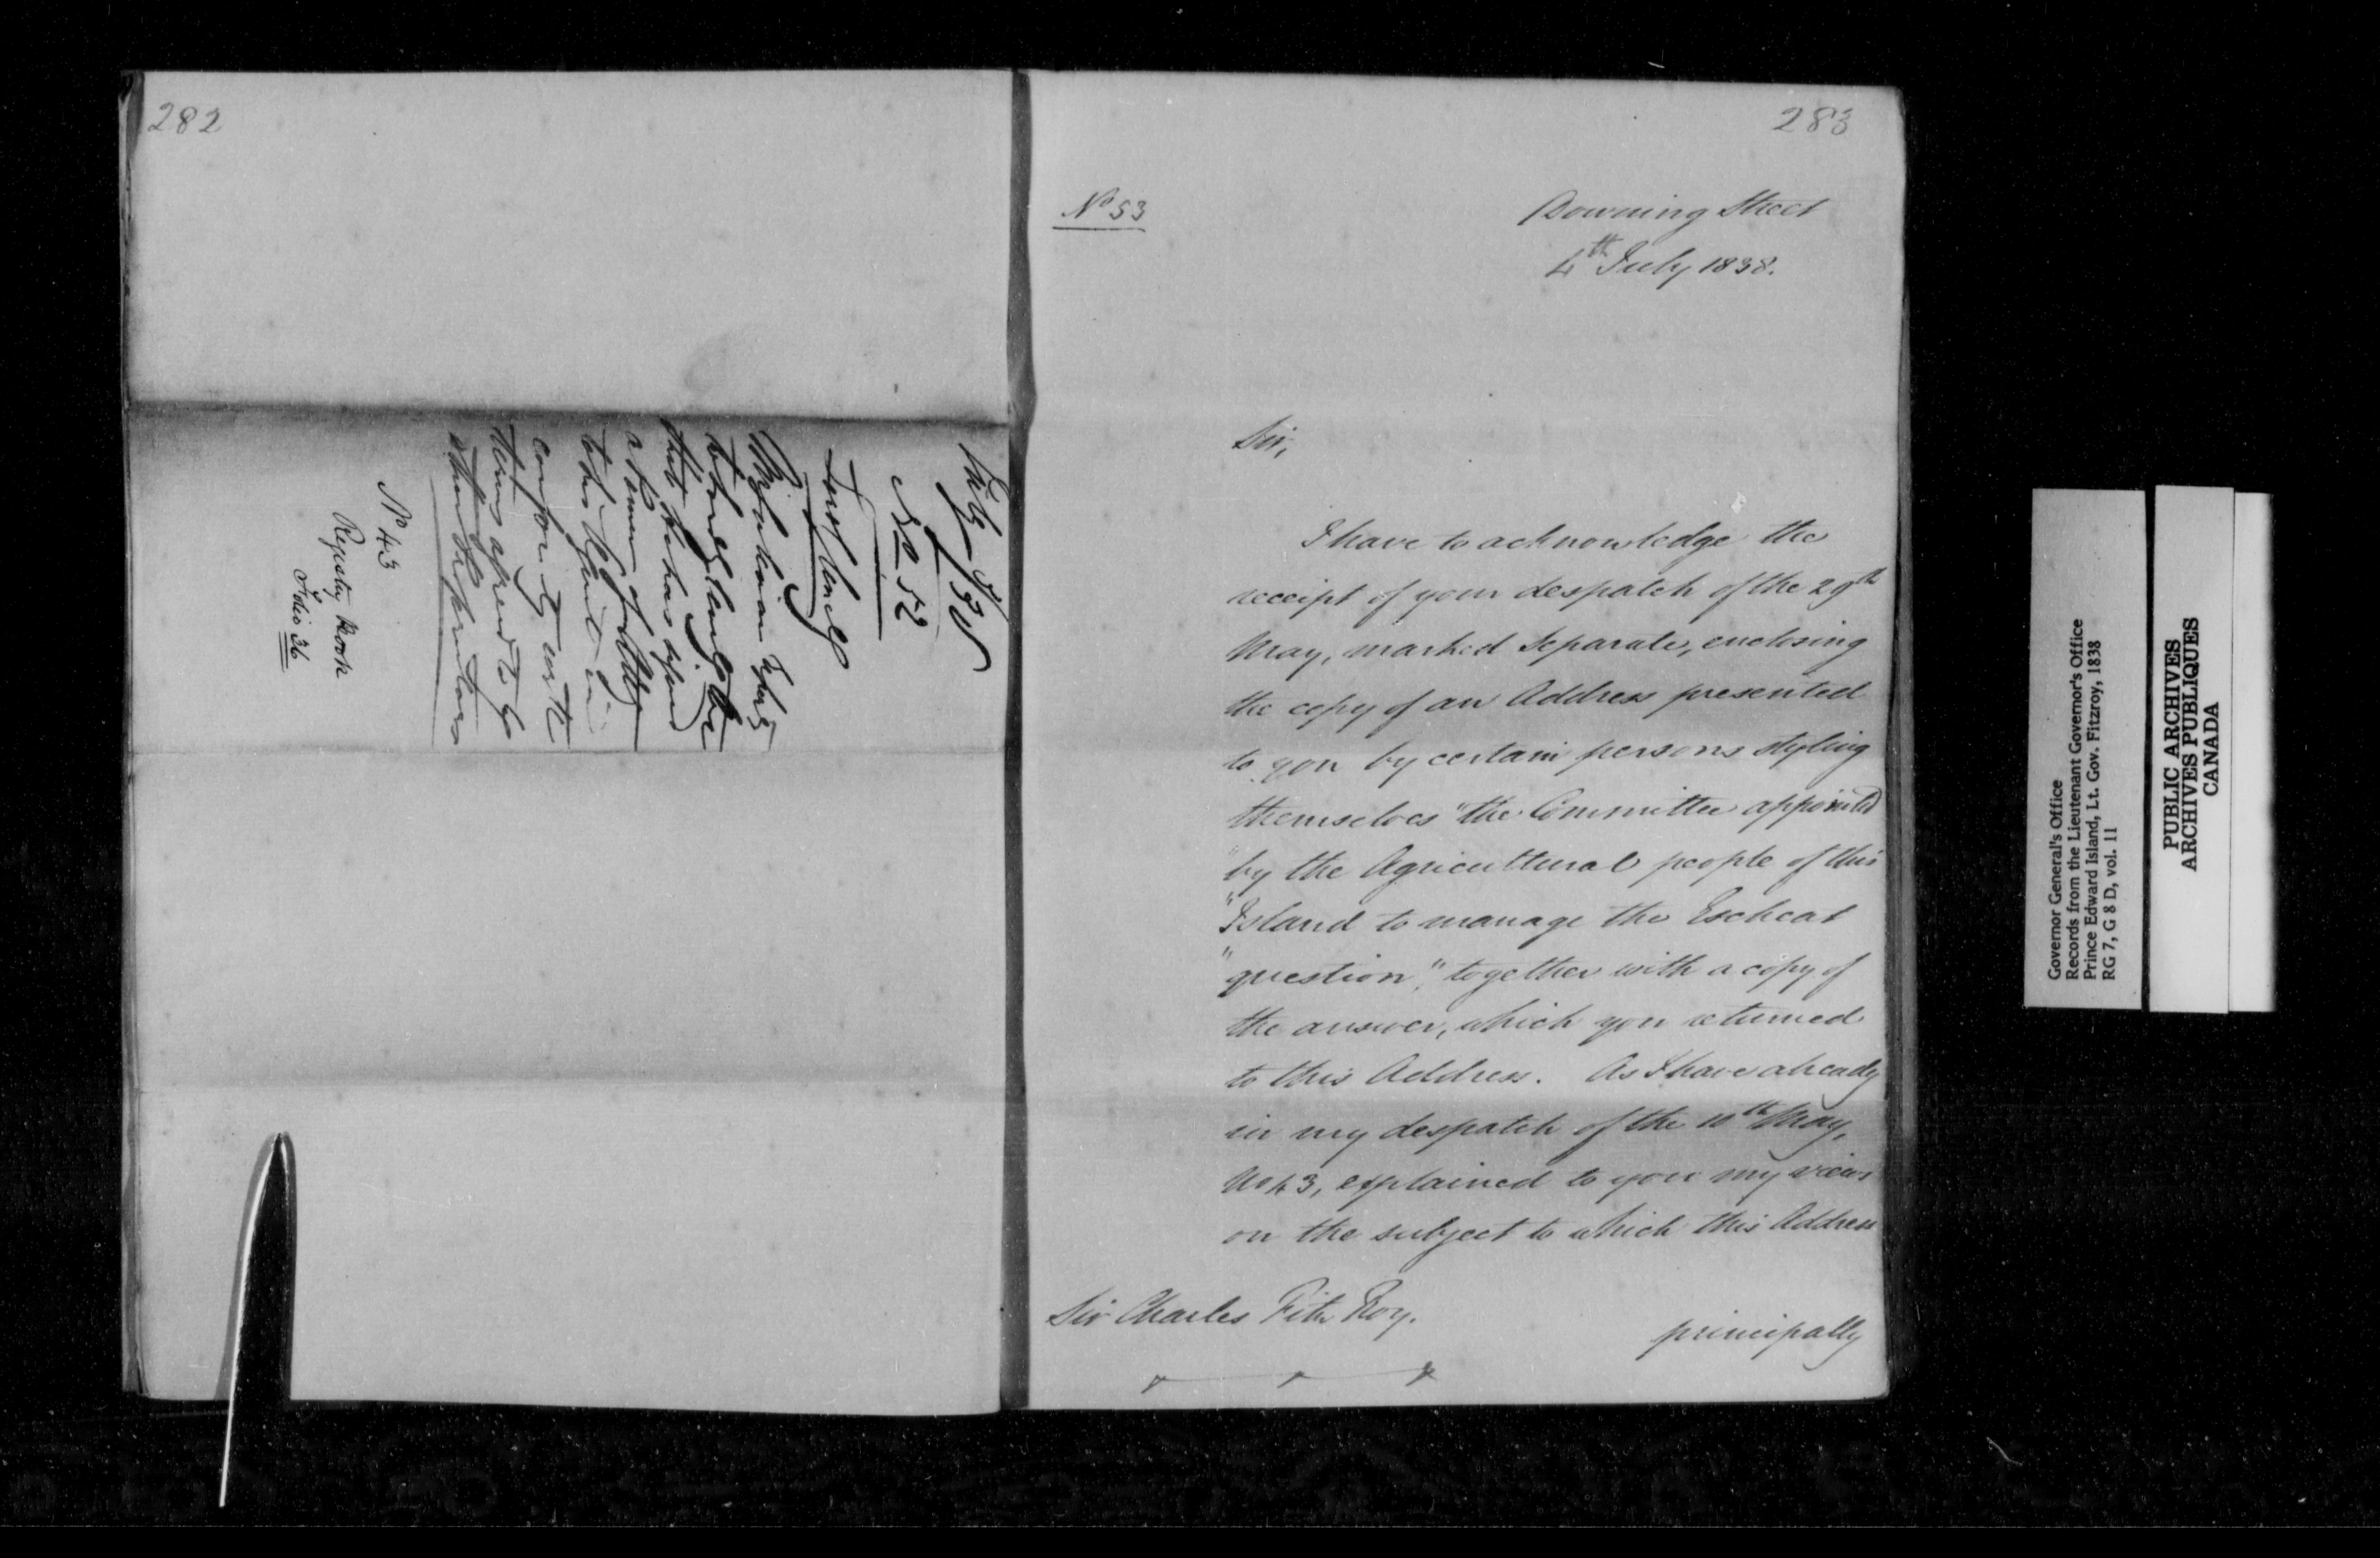 282
July 4/38
No 52
N° 43
Registry Book
Folio 36
283
N° 53
Downing Street
4th July 1838.
Sir,
I have to acknowledge the
receipt of your despatch of the 29th
May, marked Separate, enclosing
the copy of an Address presented
to you by certain persons styling
themselves "the Committee appointed
"by the Agricultural people of this
"Island to manage the Escheat
"question," together with a copy of
the answer, which you returned
to this Address. As I have already
in my despatch of the 10th May,
No 43, explained to you my views
on the subject to which this Address
Sir Charles Fitz Roy.
principally
Governor General's Office
Records from the Lieutenant Governor's Office
Prince Edward Island, Lt. Gov. Fitzroy, 1838
RG 7, G 8 D, vol. 11
PUBLIC ARCHIVES
ARCHIVES PUBLIQUES
CANADA